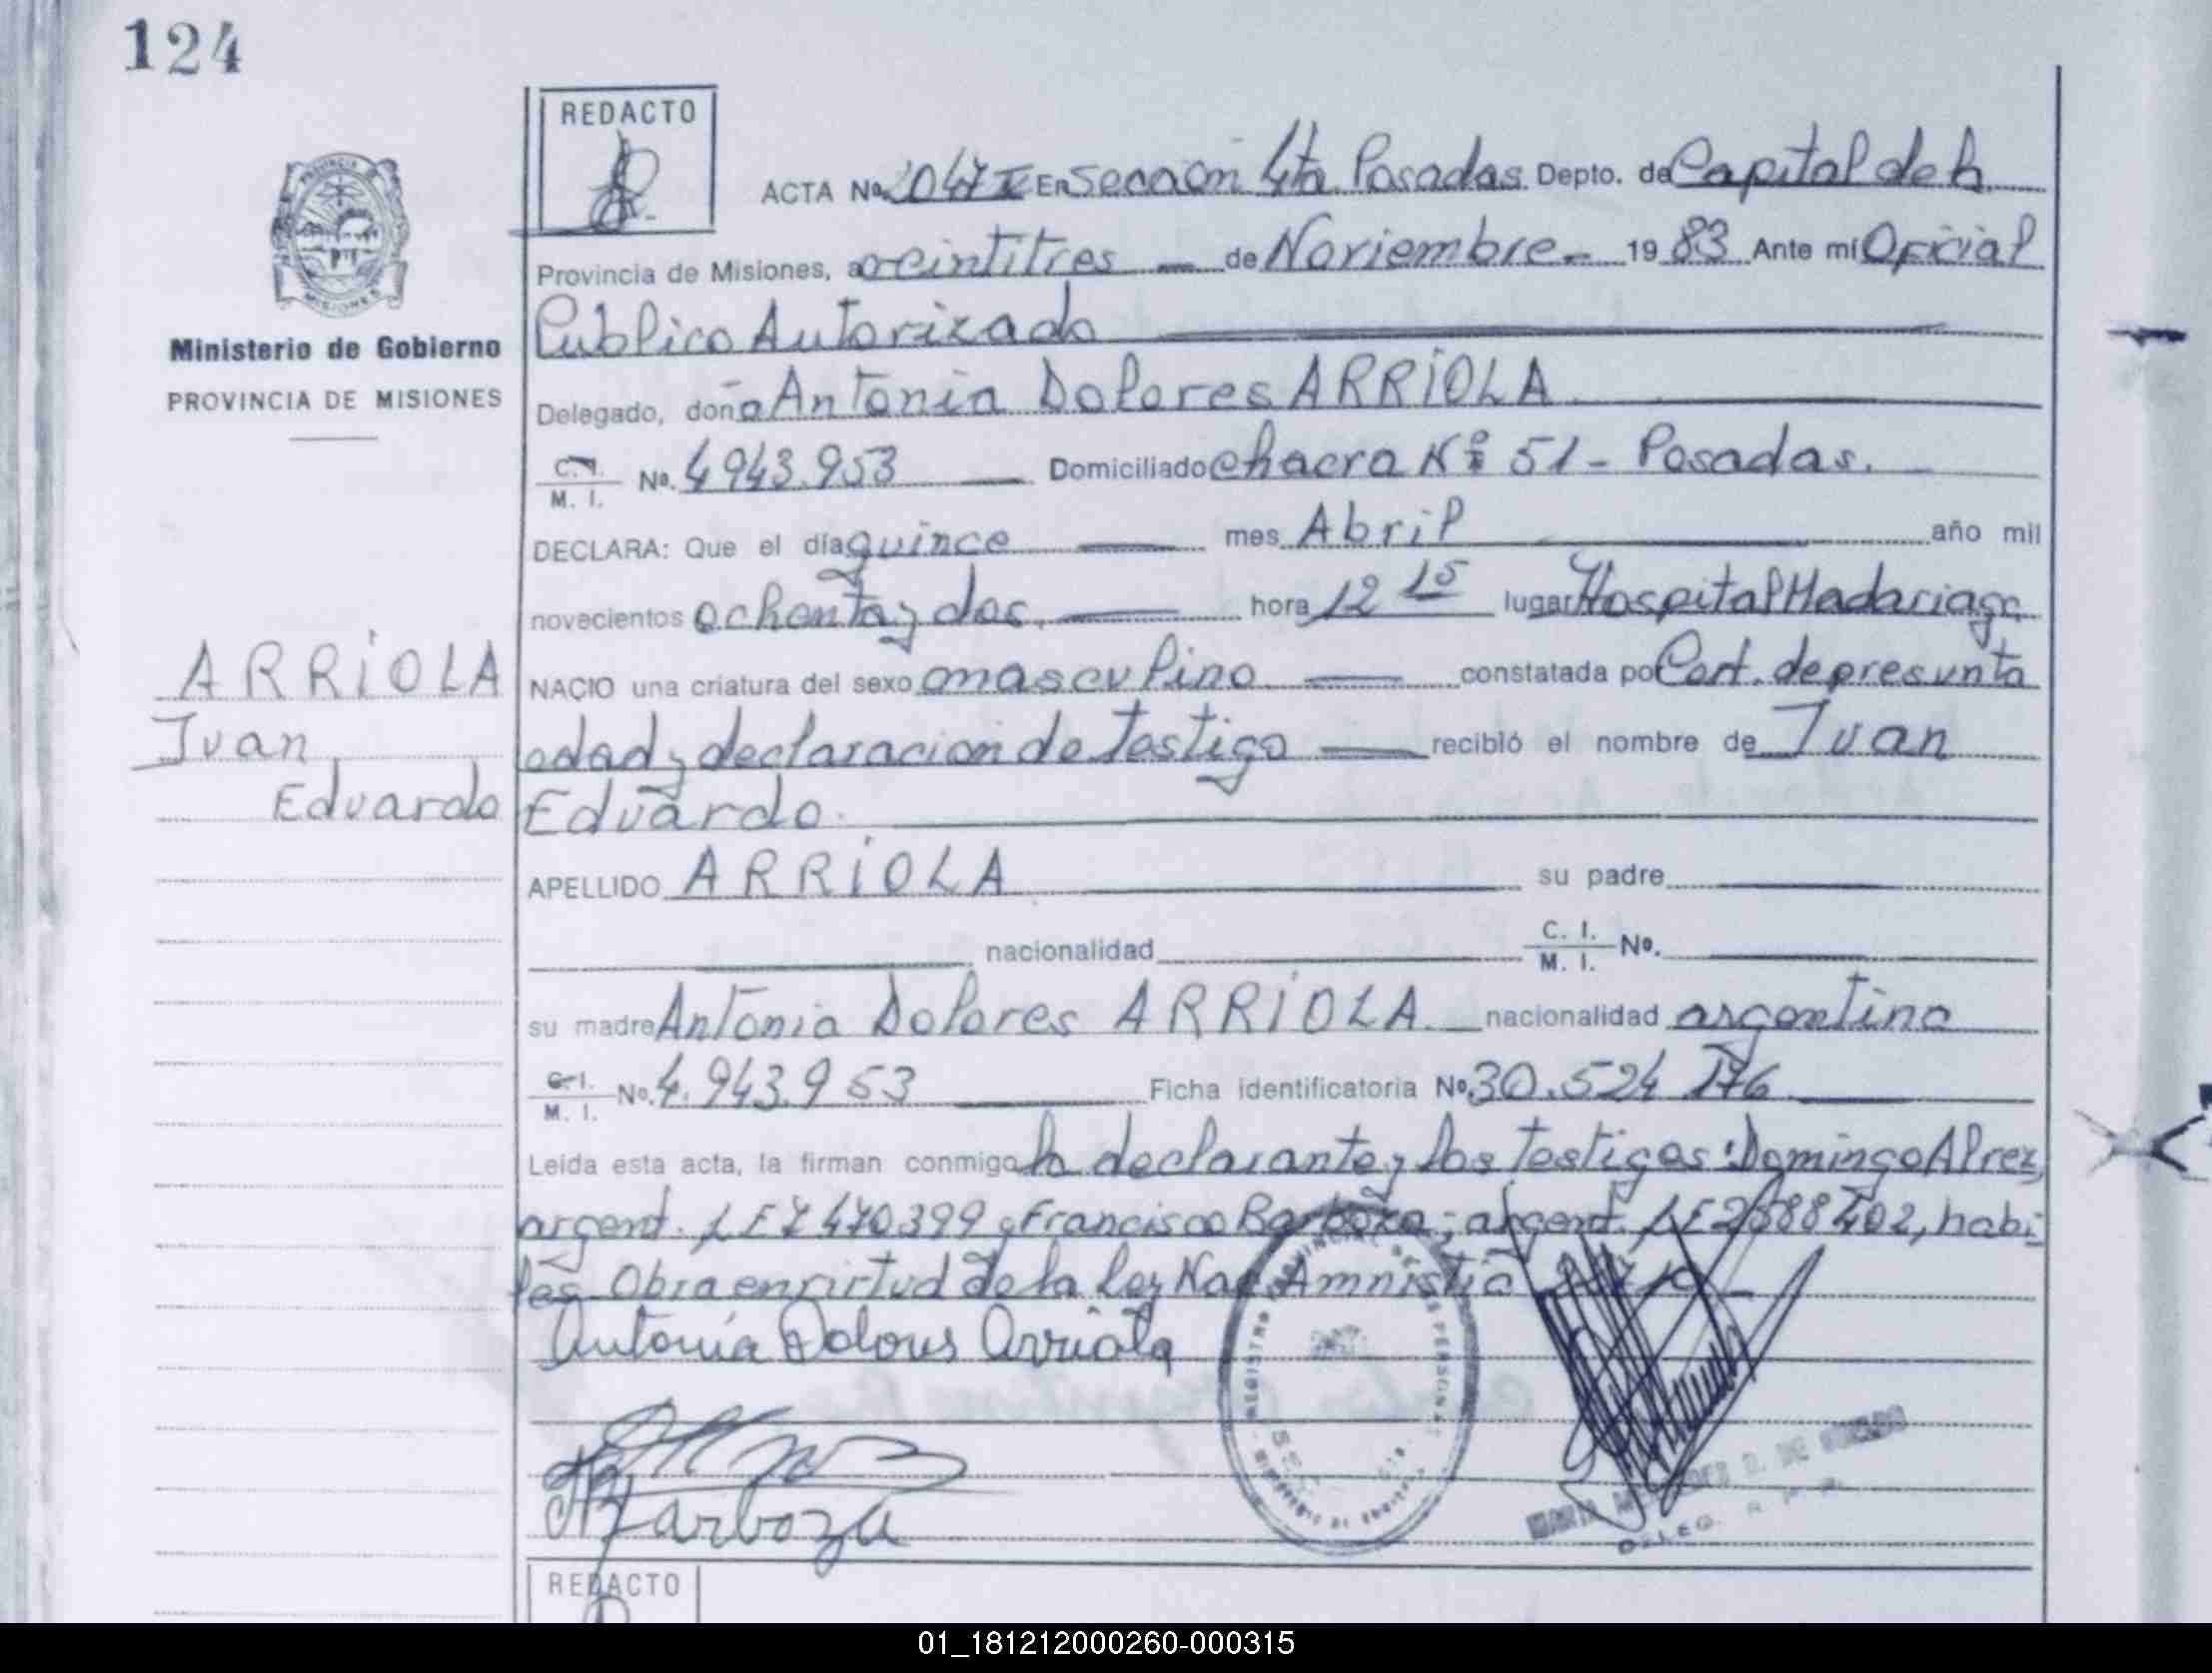 124
REDACTO
PROVINCIA
MISIONES
Ministerio de Gobierno
PROVINCIA DE MISIONES
ACTA Nº 2047 I EN Sección 4ta Posadas Depto. de Capital de la
Provincia de Misiones, a veintitres — de Noviembre - 19 83 Ante mí Oficial
Publico Autorizado
Delegado, doña Antonia Dolores ARRIOLA
C. I.
M. I. Nº. 4943.953 — Domiciliado Chacra Nº 51 - Posadas.
DECLARA: Que el día quince — mes Abril — año mil
novecientos ochenta y dos. — hora 12 15 lugar Hospital Madariaga
NACIO una criatura del sexo masculino — constatada por Cert. de presunta
edad y declaracion de testigo — recibió el nombre de Juan
Eduardo.
ARRIOLA
Juan
Eduardo
APELLIDO ARRIOLA — su padre —
— nacionalidad — C. I.
M. I. Nº. —
su madre Antonia Dolores ARRIOLA — nacionalidad argentina
C. I.
M. I. Nº. 4.943.953 — Ficha identificatoria Nº 30.524 176 —
Leída esta acta, la firman conmigo la declarante y los testigos: Domingo Alrez,
argent. LE 7470399 y Francisco Barboza; argent. LE 2588402, habi-
les. Obra en virtud de la Ley Nac. Amnistia
Antonia Dolores Arriola
Barboza
REGISTRO PROVINCIAL DE LAS PERSONAS
MARIA DE
DELEG. R. P. P.
REDACTO
01_181212000260-000315